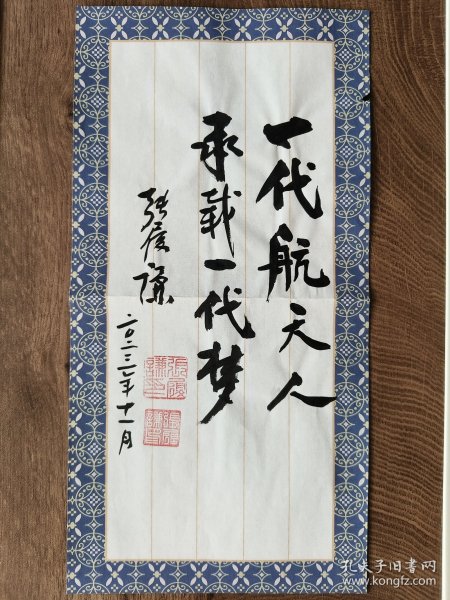 一代航天人
承载一代梦
张履谦
二〇二三年十一月
孔夫子旧书网
www.kongfz.com